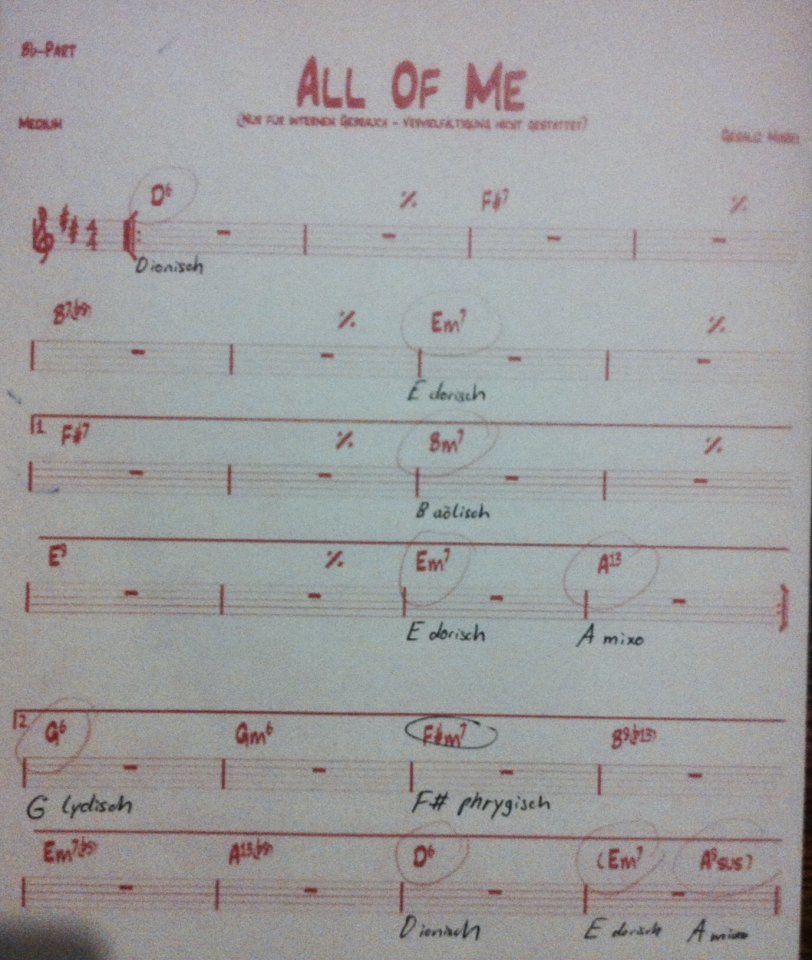 Bb-Part
All Of Me
(Nur für internen Gebrauch - Vervielfältigung nicht gestattet)
Medium
D6 ٪ F#7 ٪
4 4
D ionisch
B7(b9) ٪ Em7 ٪
E dorisch
1. F#7 ٪ Bm7 ٪
B aölisch
E9 ٪ Em7 A13
E dorisch A mixo
2. G6 Gm6 F#m7 B9(b13)
G lydisch F# phrygisch
Em7(b5) A13(b9) D6 (Em7 A9sus)
D ionisch E dorisch A mixo